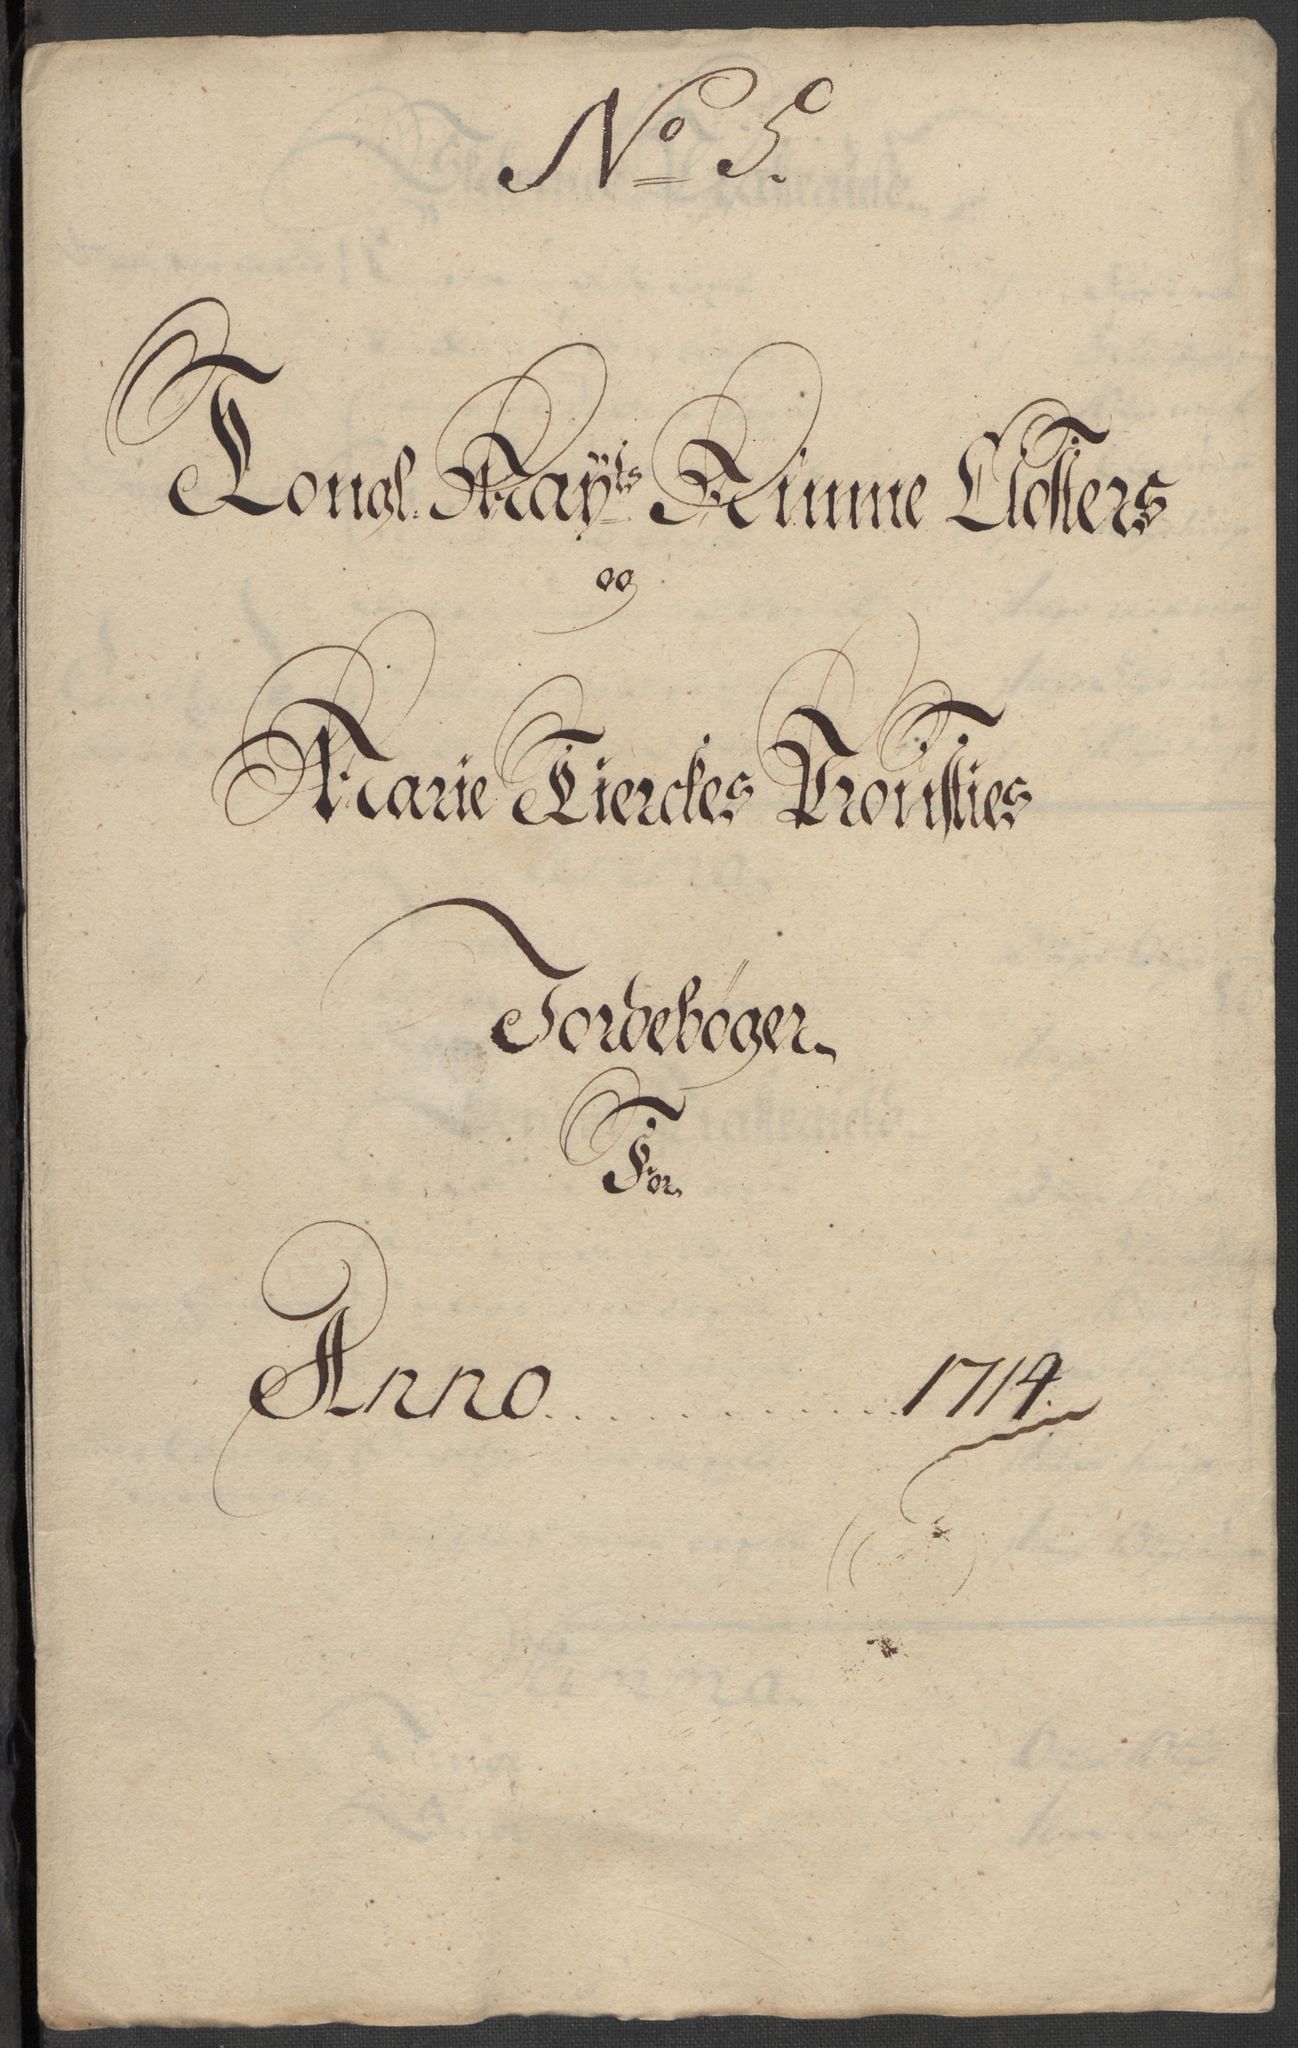 No 5.
Kongl. Mayts Nunne Closters
og
Marie Kierckes Prousties
Jordebøger
For
Anno . . . . . . . . . . . . 1714.